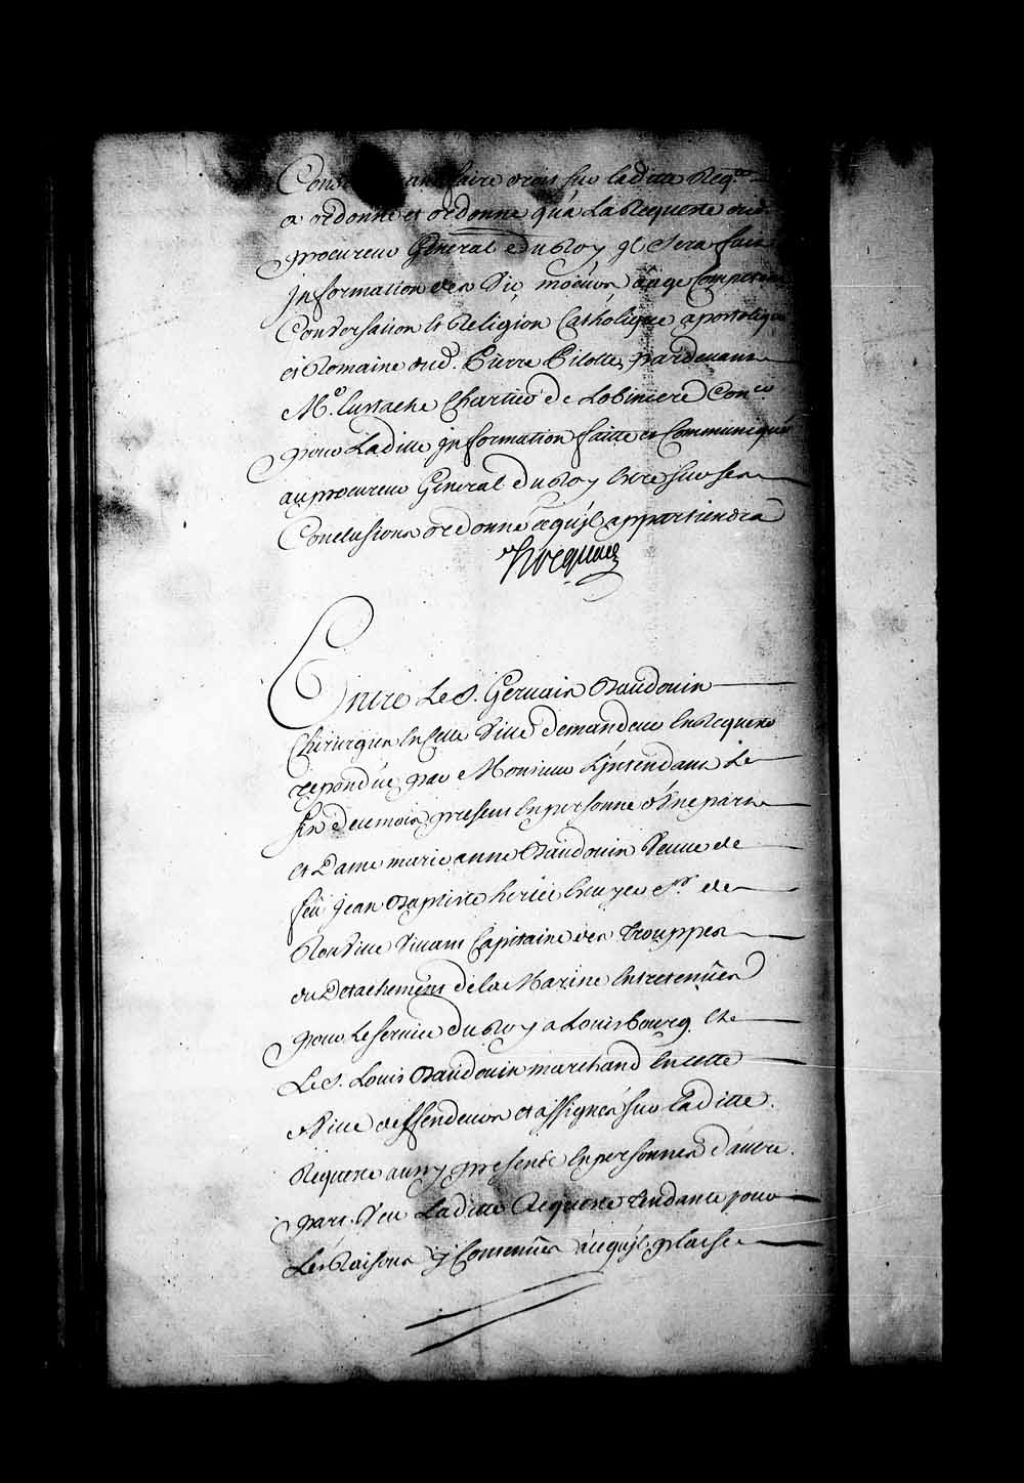 Conseil avant faire droit sur laditte Req.te
a ordonné et ordonne qu'a La Requeste dud.
procureur General du Roy jl sera fait
jnformation des vie, moeurs aage Competant
Conversation et Religion Catholique apostolique
et Romaine dud. Pierre Pilotte, pardevant
M.e Eustache Chartier de Lobiniere Con.er
pour Laditte jnformation faitte et Communiquée
au procureur General du Roy Estre sur ses
Conclusions ordonné ce qu'jl appartiendra
Hocquart
Entre Le S. Gervais Baudouin
Chirurgien En Cette Ville demandeur En Requeste
repondüe par Monsieur L'jntendant Le
six de ce mois, present En personne d'Une part
et Dame marie anne Baudouin Veuve de
feu jean Baptiste hertel Ecuyer S.r de
Rouville Vivant Capitaine des Trouppes
du Detachement de la Marine Entretenües
pour Le service du Roy a Louisbourg, Et
Le S. Louis Baudouin marchand En cette
Ville deffendeurs et assignés sur Laditte
Requeste aussy presents En personnes d'autre
part. Veu Laditte Requeste tendante pour
Les Raisons y Contenües a ce qu'jl plaise